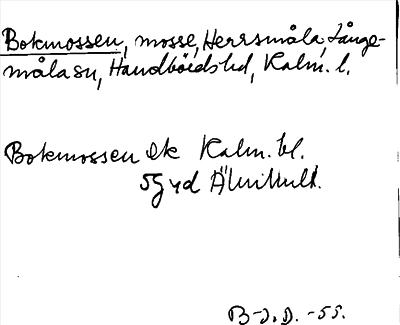 Bokmossen, mosse, Herrsmåla, Långe-
måla sn, Handbörds hd, Kalm. l.
Bokmossen ek Kalm. bl.
5G vd Älvhult.
B-J. D. -55.